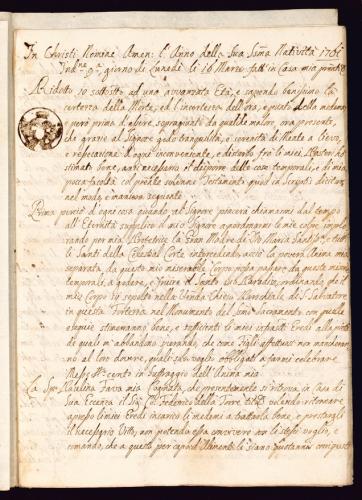 In Christi Nomine Amen: l'Anno della Sua Ss.ma Natività 176
Ind.ne 9.a, giorno di Lunedì li 16 Marzo fatt' in Casa mia
Ridotto io sottoscritto ad una avvanzata Età, e sapendo benissimo la
certezza della Morte, ed l'incertezza dell'ora, e punto della medema
però prima d'essere sopragionto da qualche malore, ora presente,
che grazie al Signore godo tranquilità, e serenità di Mente a lievo,
e reparazione d'ogni inconveniente, e disturbo frà li miei,
stimati bene, anzi necessario il disporre delle cose temporali, e di mia
poca facoltà col presente Testamento in Scriptis
nel modo, e maniera seguente
Prima perciò di ogni cosa quando al Signore piacerà chiamarmi dal tempo
all'Eternità supplico il mio Signore a perdonarmi le mie colpe implo
rando per mia Protetrice la Gran Madre de Dio Maria Sant.ma, e tutti
li Santi della Celestial Corte intercedendo, acciò la povera Anima mia
separata da questo mio miserabile Corpo possa passare da queste miserie
temporali, a godere, e fruire il Santo suo Paradiso, ordinando che il
mio Corpo sij sepolto nella Ven.da Chiesa Parochiale di S. Salvatore
in questa Fortezza nel Monumento del Ss.mo Sacramento con quale
esequie stimeranno bene, e sufficienti li miei infrasti Eredi alla pietà
di quali m'abbandono sperando, che come figli affettuosi non mancheran
no al loro dovere, quali solo voglio obbligati a farmi celebrare
Messe N.o cento in suffraggio dell'Anima mia
La Sig.ra Paulina Fava mia Cognata, che presentemente si ritrova in Casa di
Sua Eccenza il Sig.r Co: Federico della Torre volendo ritornare
apresso li miei Eredi incarico li medemi a trattarla bene, e prestargli
il necessario Vitto, non potendo essa conservare con li stessi voglio, e
comando, che a questa per caparra alimenti li siano